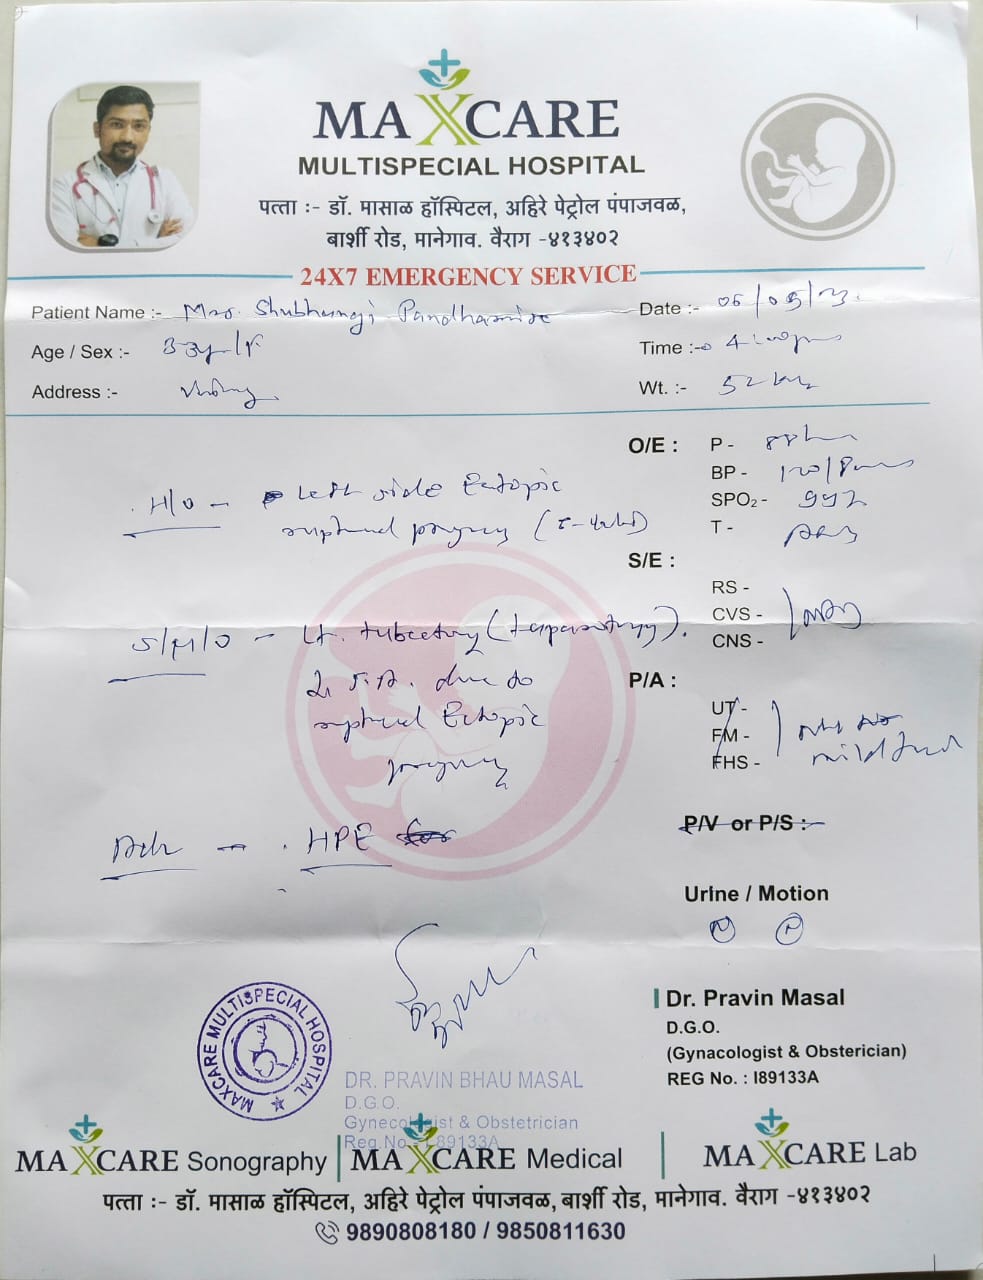 MAXCARE
MULTISPECIAL HOSPITAL
पत्ता :- डॉ. मासाळ हॉस्पिटल, अहिरे पेट्रोल पंपाजवळ,
बार्शी रोड, मानेगाव. वैराग -४१३४०२
24X7 EMERGENCY SERVICE
Patient Name :- Mrs. Shubhangi
Date :- 06/05/23.
Age / Sex :- 33yr/F
Time :- 4:00pm
Address :-
Wt. :- 52 kg
O/E :
P - 88
BP - 120/80
SPO₂ - 99%
T -
H/O - Left side Ectopic
ruptured pregnancy
S/E :
RS -
CVS -
CNS -
S/H/O - Lt. tubectomy (laparotomy).
due to
ruptured Ectopic
pregnancy
P/A :
UT -
FM -
FHS -
P/V or P/S :-
Adv - HPE
Urine / Motion
N N
MAXCARE MULTISPECIAL HOSPITAL
Dr. Pravin Masal
D.G.O.
(Gynacologist & Obsterician)
REG No. : I89133A
DR. PRAVIN BHAU MASAL
D.G.O.
Gynecologist & Obstetrician
Reg.No.- I89133A
MAXCARE Sonography
MAXCARE Medical
MAXCARE Lab
पत्ता :- डॉ. मासाळ हॉस्पिटल, अहिरे पेट्रोल पंपाजवळ, बार्शी रोड, मानेगाव. वैराग -४१३४०२
9890808180 / 9850811630